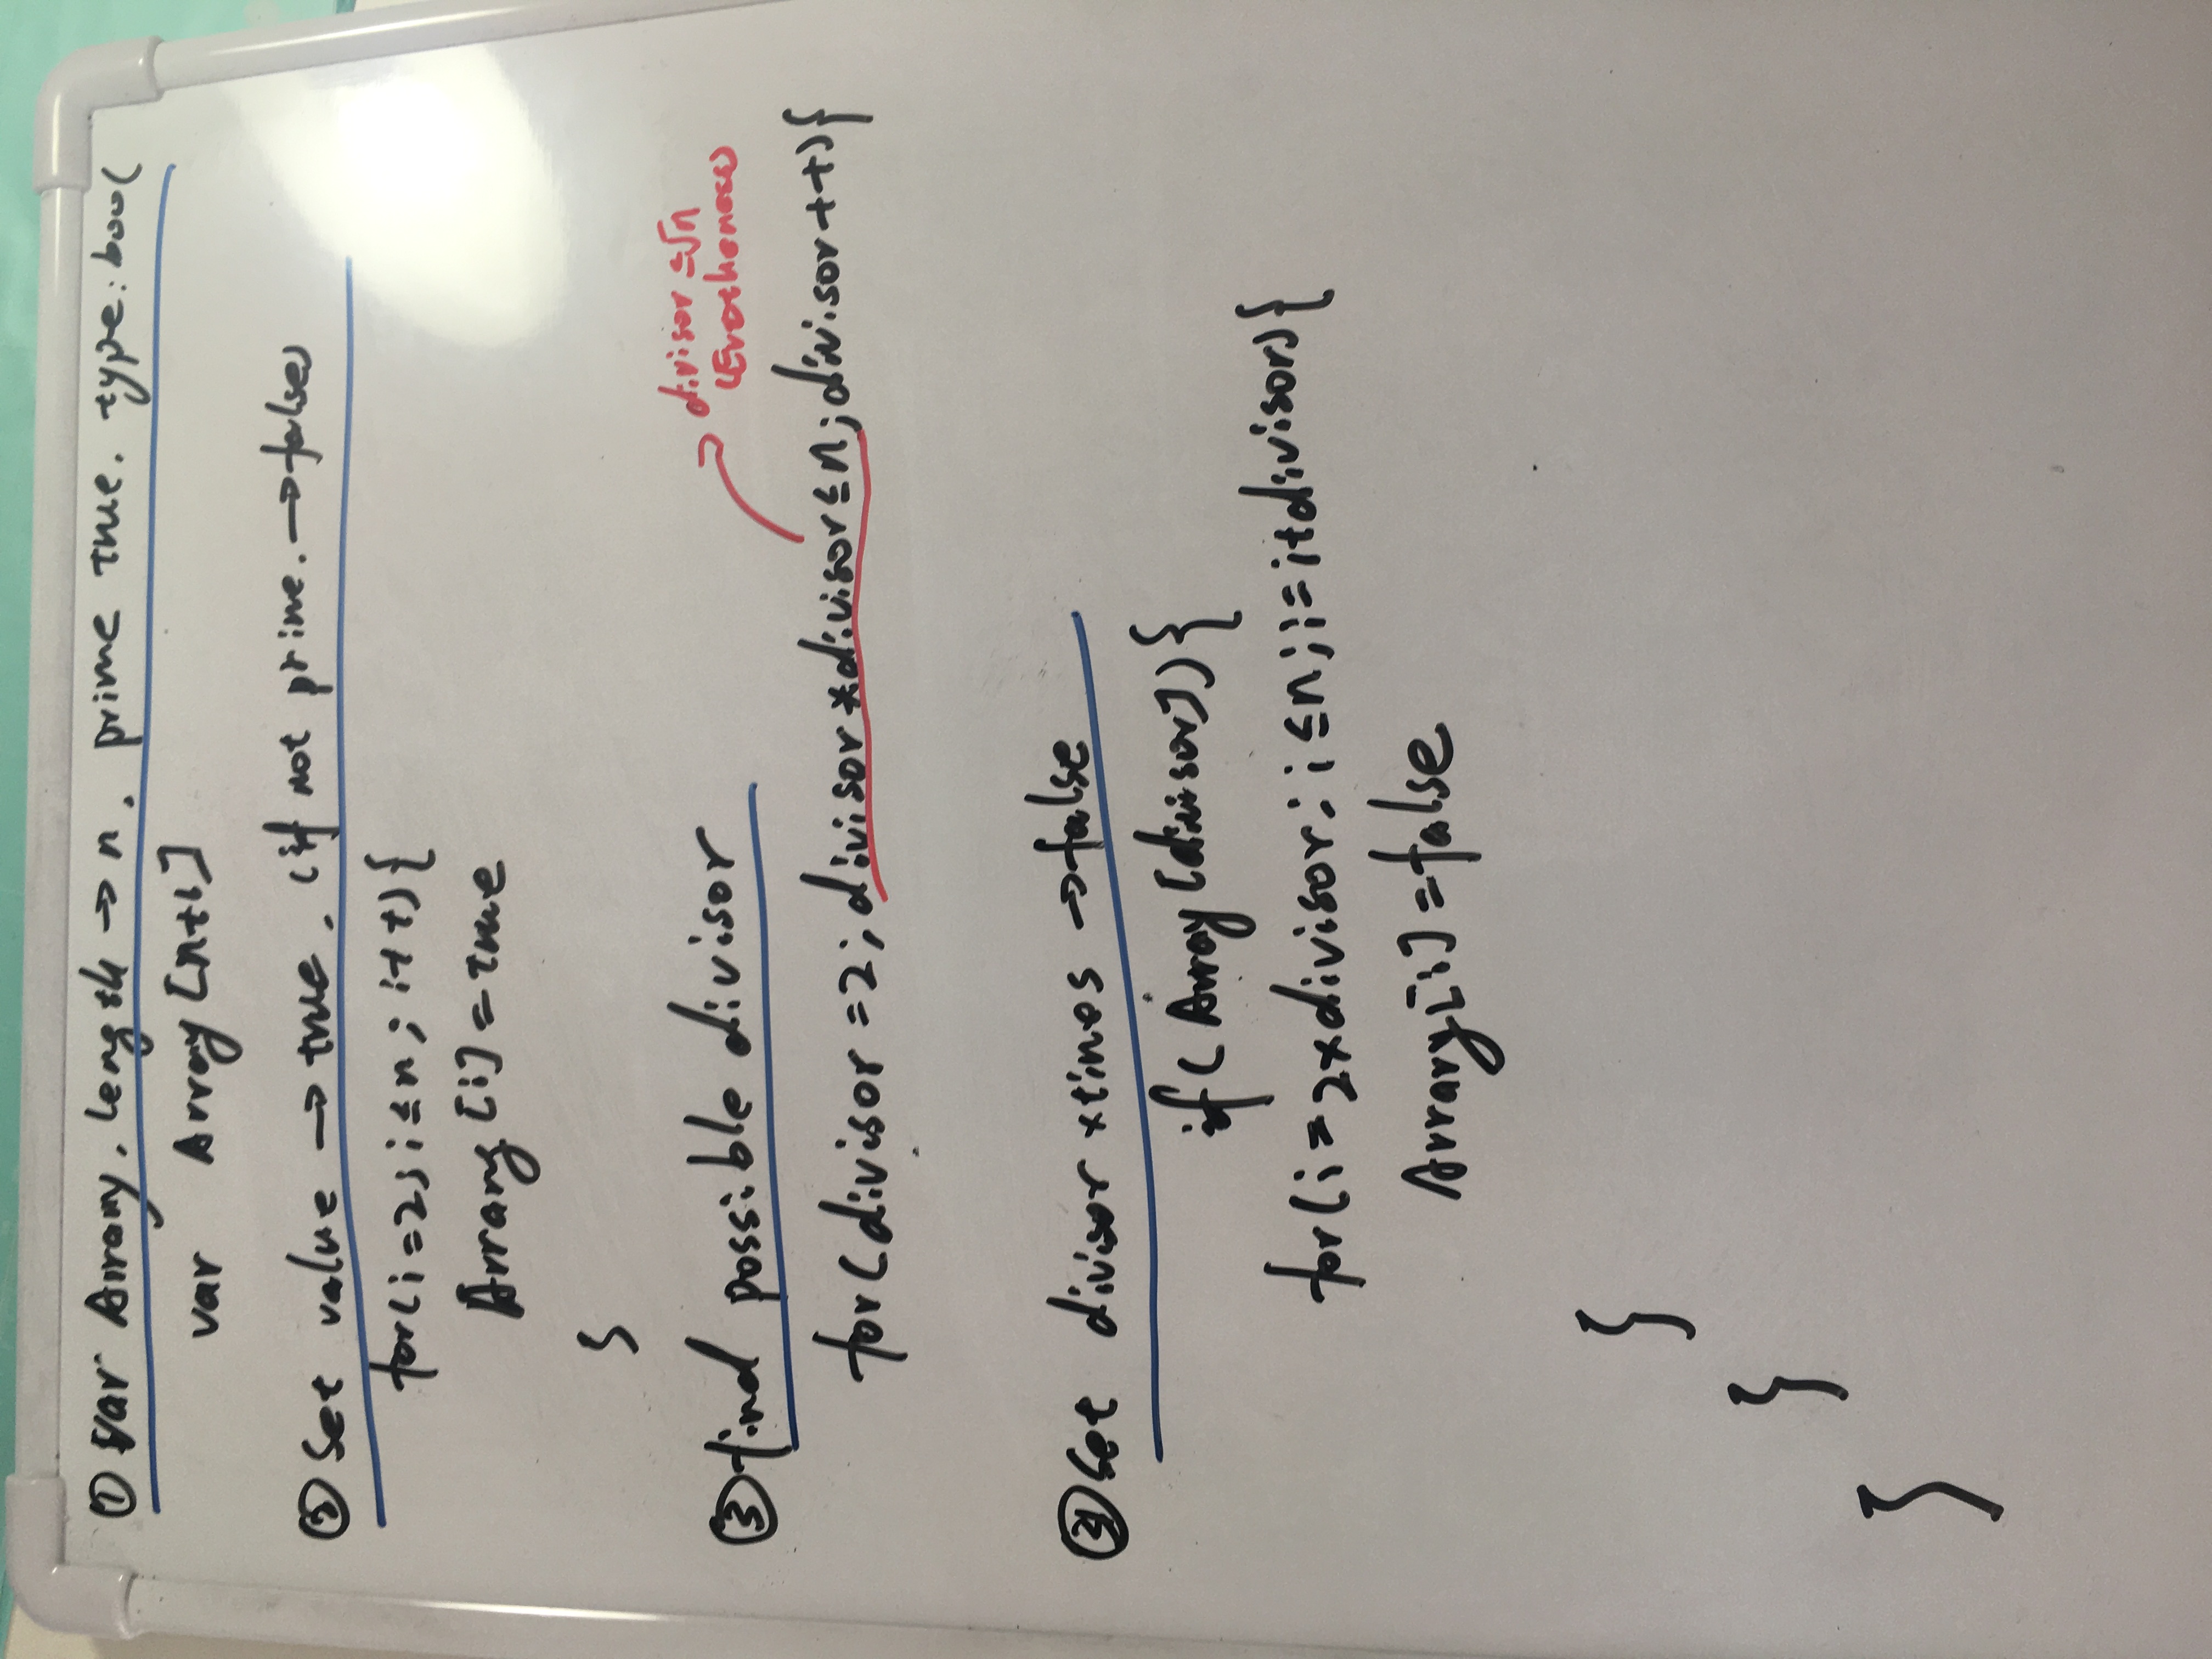 ① var Array. length → n. prime true. type: bool
var Array [n+1]
② Set value → true. (if not prime. → false)
for(i=2; i≤n; i++){
Array [i] = true
}
③ find possible divisor
divisor ≤√n
for(divisor =2; divisor *divisor ≤ n; divisor ++){
④ Set divisor × times → false
if( Array [divisor]){
for(i = 2×divisor; i ≤n; i= i+divisor){
Array[i] =false
}
}
}